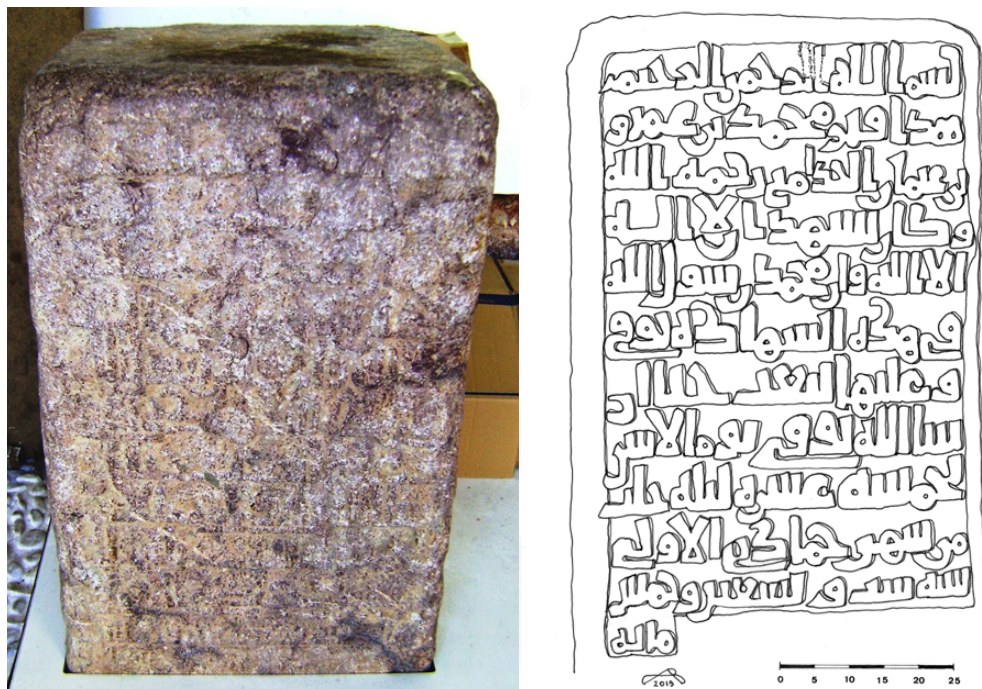 بسم الله الرحمن الرحيم
هذا قبر محمد بن عمرو
بن رحمه الله
وكان يشهد ان لا اله
الا الله وان محمد رسول الله
وبهذه الشهادة توفي
وعليها يبعث حيا ان
شا الله توفي يوم الاثنين
لخمسة عشر ليلة خلت
من شهر جمادى الاولى
سنة وخمس
ماية
0 5 10 15 20 25